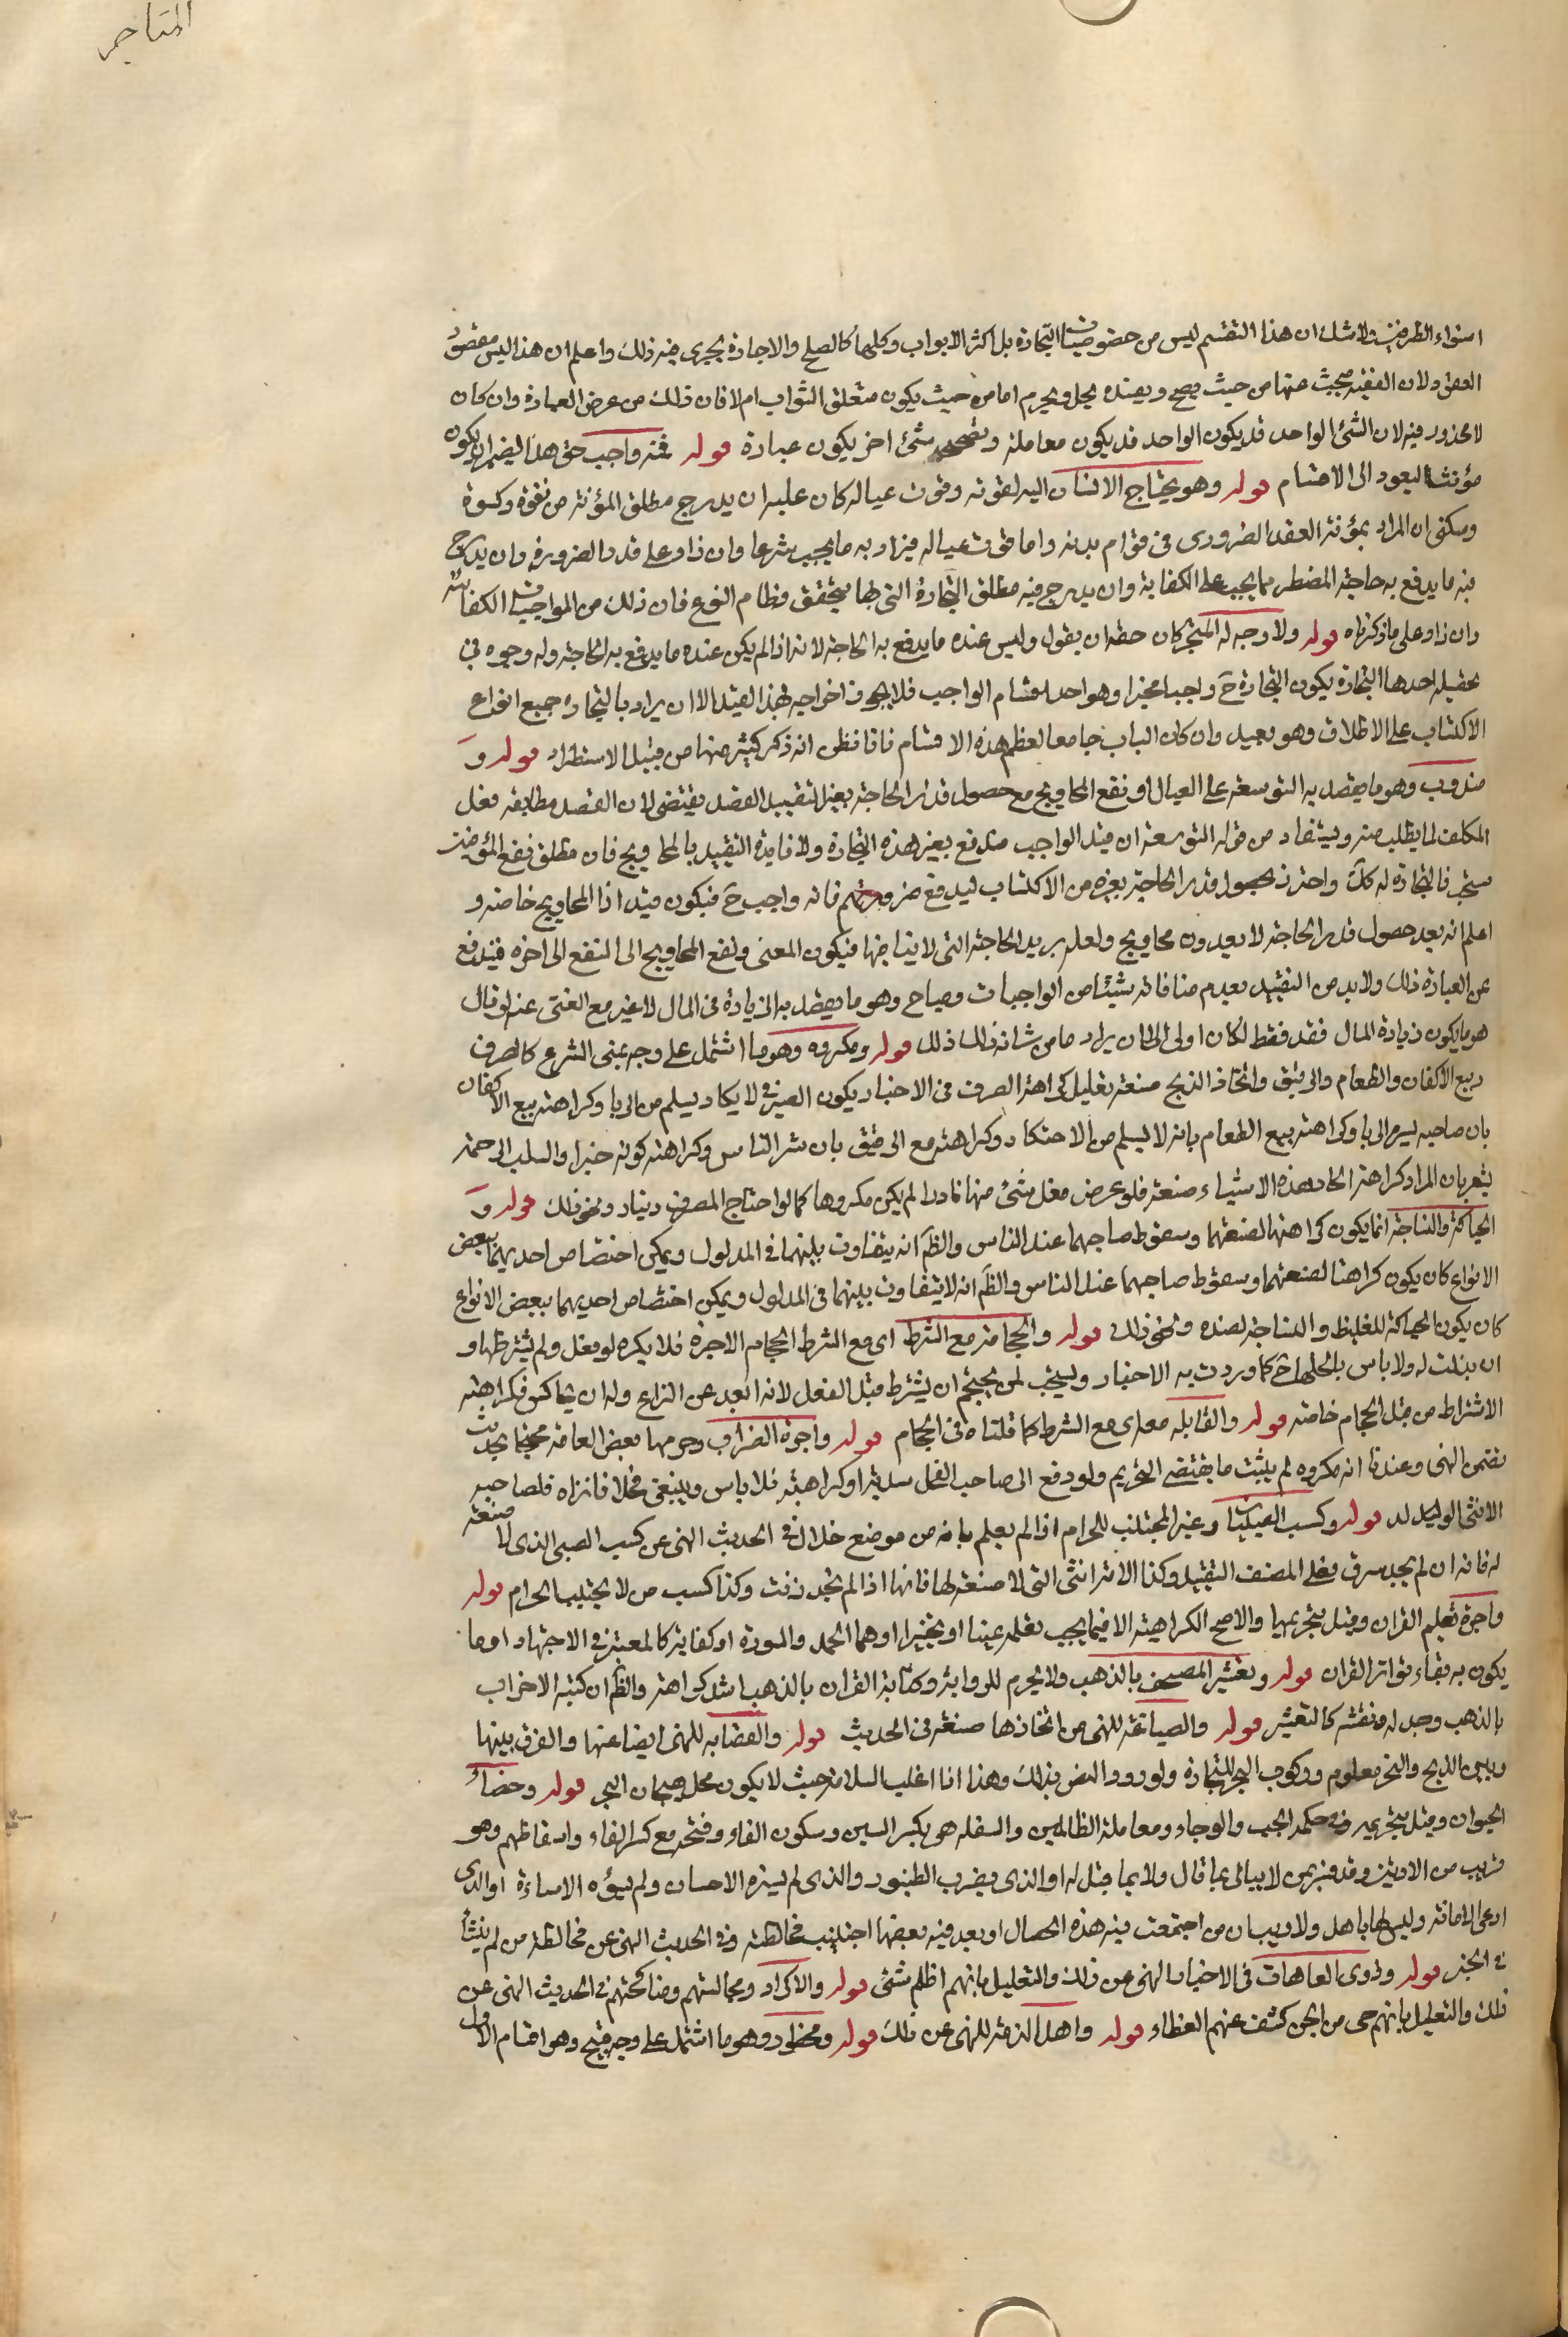 المتاجر
استواء الطرفين ولاشك ان هذا التقسيم ليس من خصوصيات التجارة بل اكثر الابواب وكلها كالصلح والاجارة يجرى فيه ذلك واعلم ان هذا ليس مقصود
لان الفقيه يبحث عنها من حيث يصح ويفسد ويحل ويحرم اما من حيث يكون متعلق الثواب ام لا فان ذلك من عرض العبادة وان كان
لا محذور فيه لان الشئ الواحد قد يكون الواحد قد يكون معاملة شئ اخر يكون عبادة قوله فمنه واجب حق هذا الضمير ان يكون
مؤنثا ليعود الى الاقسام قوله وهو يحتاج الانسان اليه لقوته وقوت عياله كان عليه ان يدرج مطلق المؤنة من نفقة وكسوة
ان المراد بمؤنته القدر الضرورى فى قوام بدنه واما قوت عياله فيراد به ما يجب شرعا وان زاد على قدر الضرورة وان يدرج
فيه ما يدفع به حاجة المضطر مما يجب على الكفاية وان يدرج فيه مطلق التجارة التى بها يتحقق نظام النوع فان ذلك من الواجبات الكفائية
وان زاد على ما ذكرناه قوله ولا وجه له المتجر كان حقه ان يقول وليس عنده ما يدفع به الحاجة لانه اذا لم يكن عنده ما يدفع به الحاجة وله وجوه فى
تحصيله احدها التجارة يكون التجارة ح واجبا مخيرا وهو احد اقسام الواجب فلا يجوز اخراجه بهذا القيد الا ان يراد بالتجارة جميع انواع
الاكتساب على الاطلاق وهو بعيد وان كان الباب جامعا لعظم هذه الاقسام فانا نظن انه ذكر كثير منها من قبيل الاستطراد قوله و
مندوب وهو ما يقصد به التوسعة على العيال او نفع المحاويج مع حصول قدر الحاجة بغيره التقييد القصد يقتضى لان القصد مطابقة فعل
المكلف لما يطلب منه ويستفاد من قوله التوسعة ان قيد الواجب مندفع بغير هذه التجارة ولا فايدة التقييد بالمحاويج فان مطلق نفع المؤمنين
مستحب فالتجارة له كك واحترز بحصول قدر الحاجة بغيره من الاكتساب ليدفع ضرورتهم فانه واجب ح فيكون قيد اذا المحاويج خاصة و
اعلم انه بعد حصول قدر الحاجة لا يعدون محاويج ولعله يريد الحاجة التى لا فيكون المعنى ونفع المحاويج الى النفع الى اخره فيندفع
عن العبارة ذلك ولابد من التقييد بعدم منافاته شيئا من الواجبات ومباح وهو ما يقصد به الزيادة فى المال لا غير مع الغنى عنه لو قال
هو ما يكون زيادة المال فقد فقط لكان اولى الا ان يراد ما من شانه ذلك قوله ومكروه وهو ما اشتمل على وجه نهى الشرع كالصرف
وبيع الاكفان والطعام والرقيق واتخاذ الذبح صنعة تعليل كراهة الصرف فى الاخبار يكون الصيرفى لا يكاد يسلم من الربا وكراهة بيع الاكفان
بان صاحبه يسره الوبا وكراهة بيع الطعام بانه لا يسلم من الاحتكار وكراهة بيع الرقيق بان شر الناس وكراهة كونه جزارا لسلب الرحمة
يشعر بان المراد كراهة اتخاذ هذه الاشياء صنعة فلو عرض فعل شئ منها نادرا لم يكن مكروها كما لو احتاج الى صرف دينار ونحو ذلك قوله و
الحياكة والنساجة انما يكون كراهتها لصنعتهما وسقوط صاحبهما عند الناس والظ انه يتفاوت بينهما فى المدلول ويمكن اختصاص احديهما ببعض
الانواع كان يكون كراهتا لصنعتهما وسقوط صاحبهما عند الناس والظ انه لا يتفاوت بينهما فى المدلول ويمكن اختصاص احديهما ببعض الانواع
كان يكون الحياكة للغليظ والنساجة لضده ونحو ذلك قوله والحجامة مع الشرط اى مع اشتراط الحجام الاجرة فلا يكره لو فعل ولم يشترطها و
ان بذلت له ولا باس باكلها ح كما وردت به الاخبار ويستحب لمن يحتجم ان يشترط قبل الفعل لانه ابعد عن النزاع وله ان يماكس فكراهته
الاشتراط من قبل الحجام خاصة قوله والقابلة مع الشرط كما قلناه فى الحجام قوله واجرة الضراب وحرمها بعض العامة محتجا بحديث
تضمن النهى وعندنا انه مكروه لم يثبت ما يقتضى التحريم ولو دفع الى صاحب الفحل هدية او كرامة فلا باس وينبغى فانزاه فلصاحبه
الانثى الوليد له قوله وكسب الصبيان وغير المجتنب للحرام اذا لم يعلم بانه من موضع حلال فى الحديث النهى عن كسب الصبى الذى لا صنعة
له فانه ان لم يجد سرق فعلى المصنف التقييد وكذا الامة التى لا صنعة لها فانها اذا لم تجد زنت وكذا كسب من لا يجتنب الحرام قوله
واجرة تعليم القران وقيل بتحريمها والاصح الكراهية الا فيما يجب تعلمه عينا او تخييرا وهما الحمد والسورة او كفاية كالمعتبر فى الاجتهاد او ما
يكون به بقاء تواتر القران قوله وتعشير المصحف بالذهب ولا يحرم للرواية وكتابة القران بالذهب اشد كراهة والظ ان كتبه الاحزاب
بالذهب وجدله ونقشه كالتعشير قوله والصياغة للنهى من اتخاذها صنعة فى الحديث قوله والقصابة للنهى ايضا عنها والفرق بينها
وبين الذبح والنحر معلوم وركوب البحر للتجارة ولورود النص بذلك وهذا انا اغلب السلامة حيث لا يكون محل هيجان البحر قوله وخصاء
الحيوان وقيل بتحريمه وفى حكمه الجب والوجاء ومعاملة الظالمين والسفلة هو بكسر السين وسكون الفاء وفتحه مع كسر الفاء واسقاطهم وهو
قريب من الادنين وقد فسر بمن لا يبالى بما قال ولا بما قيل له او الذى يضرب الطنبور والذى لم يسره الاحسان ولم يسؤه الاساءة او الذى
ادعى الامانة وليس لها باهل ولا ريب ان من اجتمعت فيه هذه الخصال او بعد فيه بعضها اجتنب مخالطته وفى الحديث النهى عن مخالطة من لم ينشأ
فى الخير قوله وذوى العاهات فى الاخبار النهى عن ذلك والتعليل بانهم اظلم شئ قوله والاكراد ومجالستهم ومناكحتهم فى الحديث النهى عن
ذلك والتعليل بانهم حى من الجن كشف عنهم الغطاء قوله واهل الذمة للنهى عن ذلك قوله ومحظور وهو ما اشتمل على وجه قبيح وهو اقسام الاول